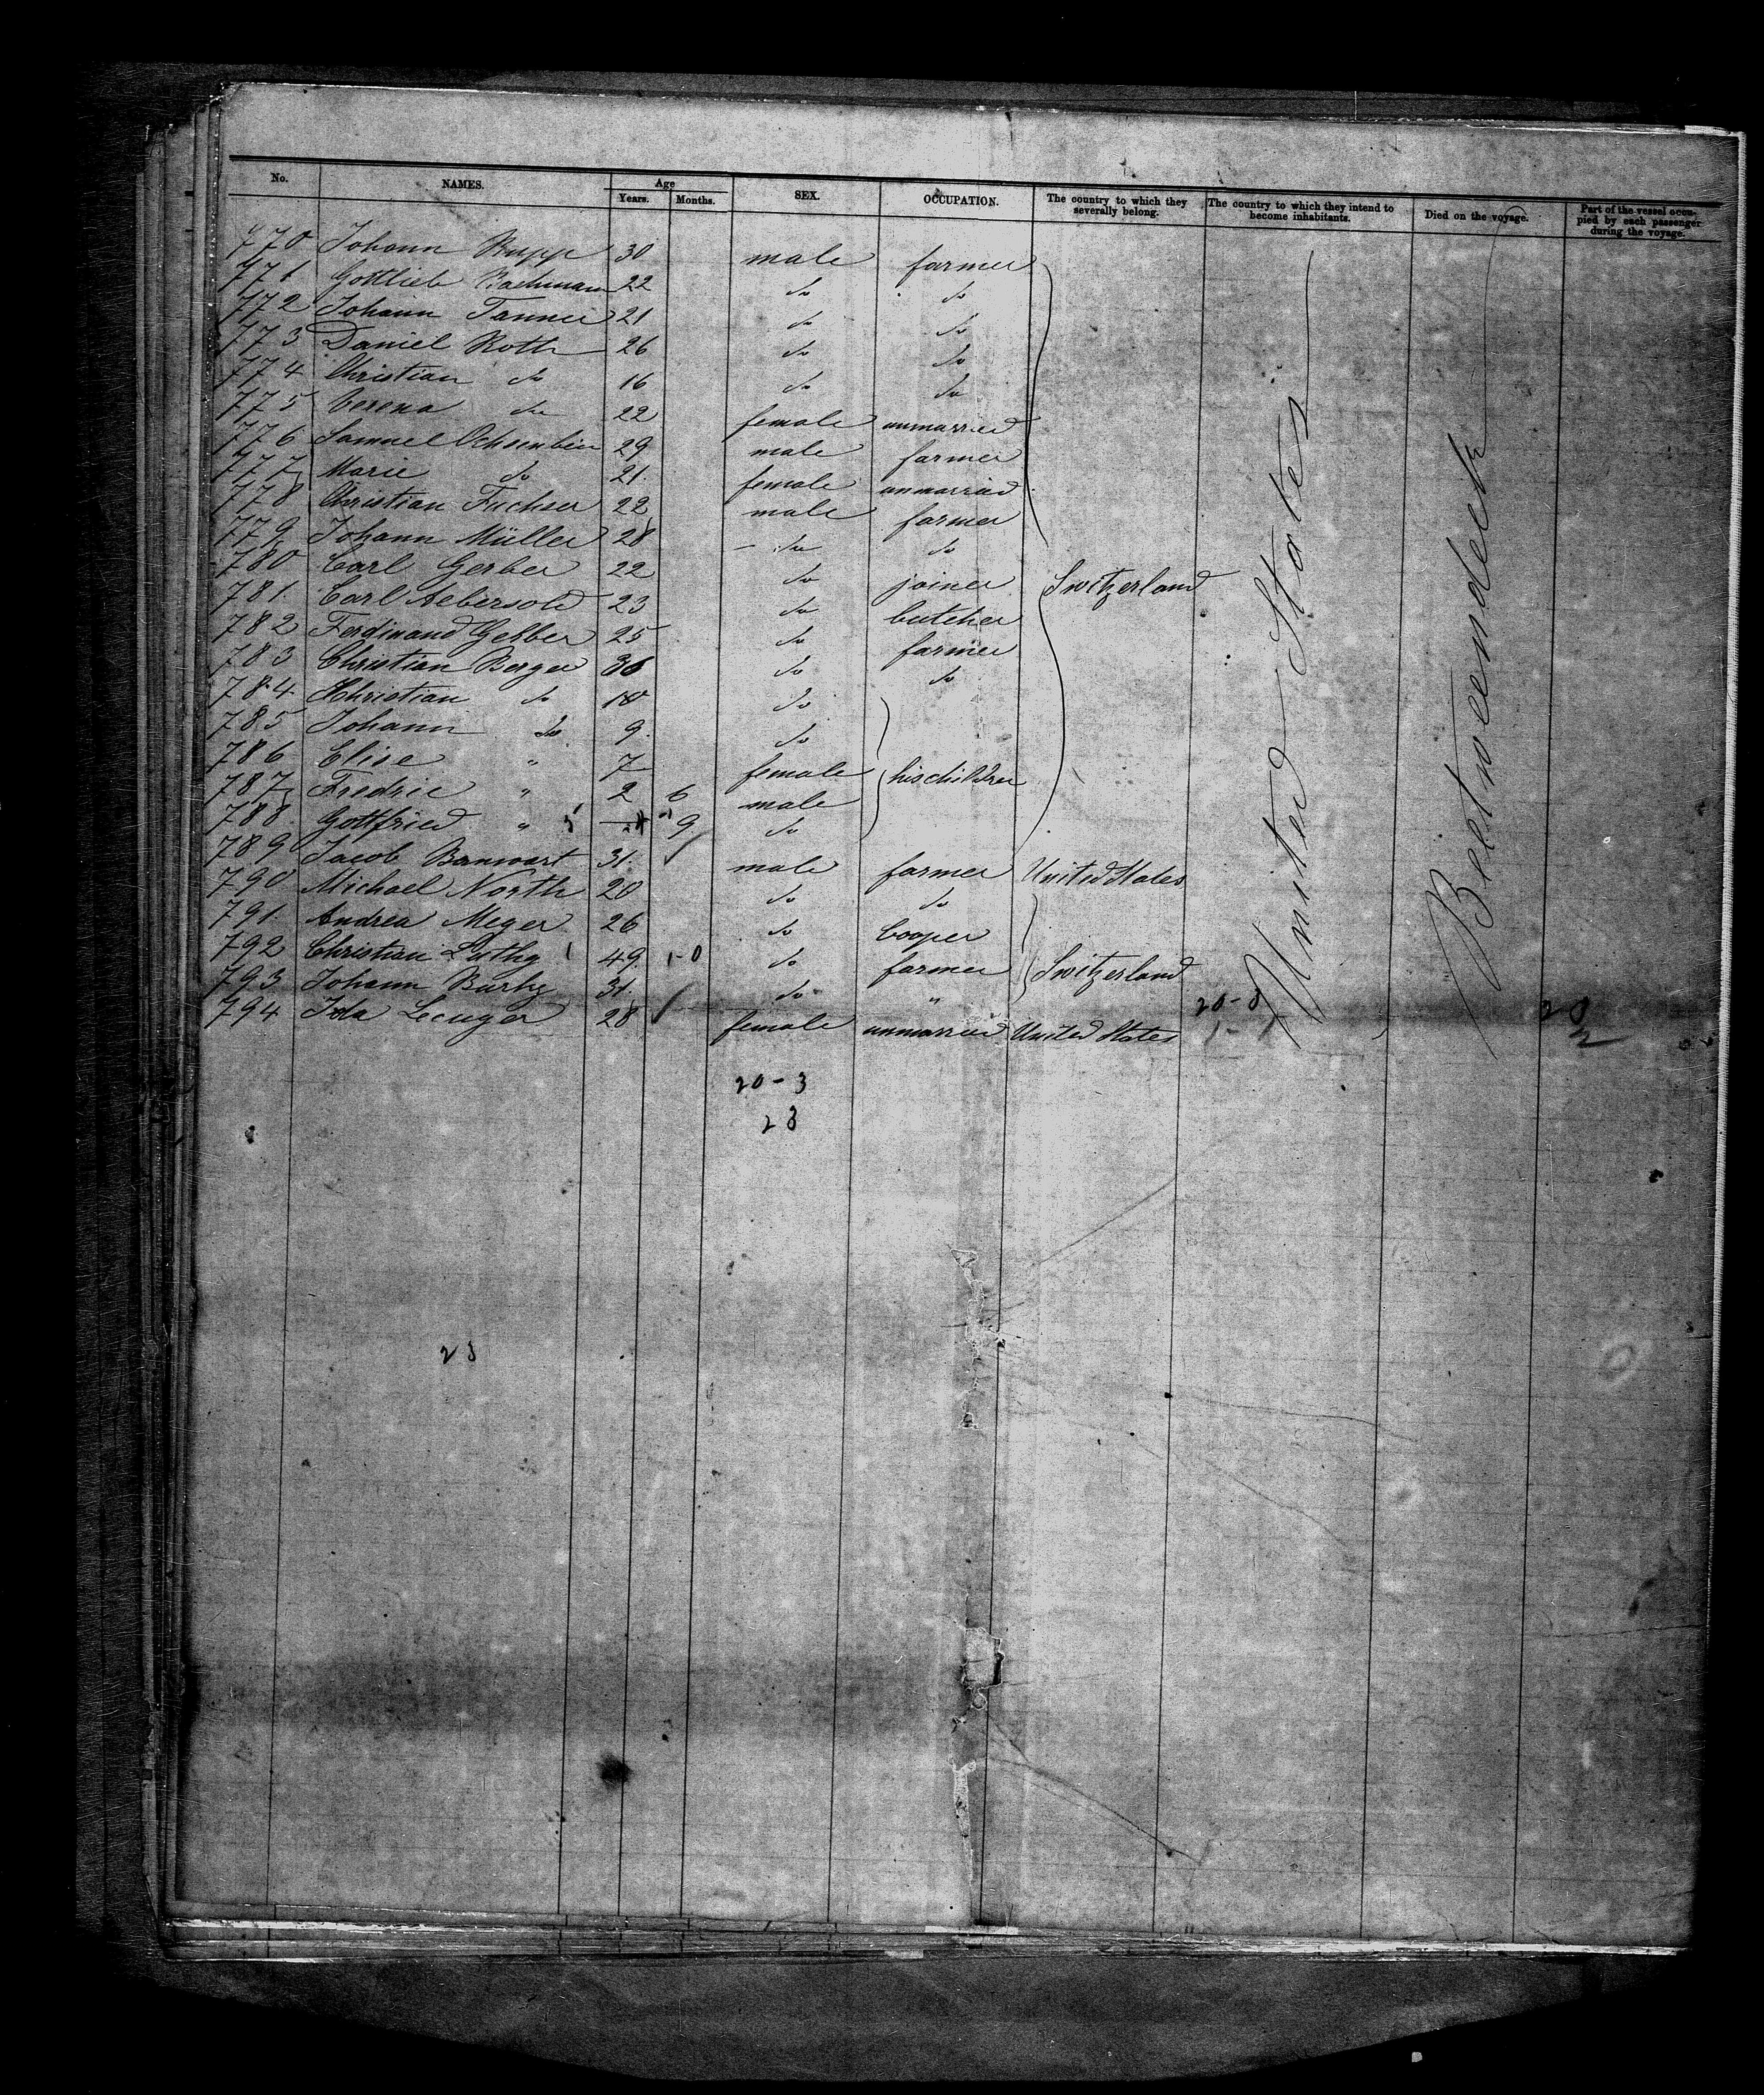 No. NAMES. Age Years. Months. SEX. OCCUPATION. The country to which they severally belong. The country to which they intend to become inhabitants. Died on the voyage. Part of the vessel occupied by each passenger during the voyage.
770 Johann Rupp 30 male farmer
771 Gottlieb Bachmann 22 do do
772 Johann Tanner 21 do do
773 Daniel Roth 26 do do
774 Christian do 16 do do
775 Verena do 22 female unmarried
776 Samuel Ochsenbein 29 male farmer
777 Marie do 21. female unmarried
778 Christian Fuchser 22 male farmer
779 Johann Müller 28 do do
780 Carl Gerber 22 do joiner Switzerland
781. Carl Aebersold 23 do butcher
782 Ferdinand Gerber 25 do farmer
783 Christian Berger 36 do do
784 Christian do 10 do
785 Johann do 9. do
786 Elise " 7 female his children
787 Fredric " 2 6 male
788 Gottfried " 9 do
789 Jacob Banwart 31. male farmer United States
790 Michael North 20 do do
791. Andrea Meger 26 do Cooper
792 Christian Luthy 49. do farmer Switzerland
793 Johann Burky 31. do "
794 Ida 28 female unmarried United States
United States
Beetweendeck
20-3
20-3
23
23